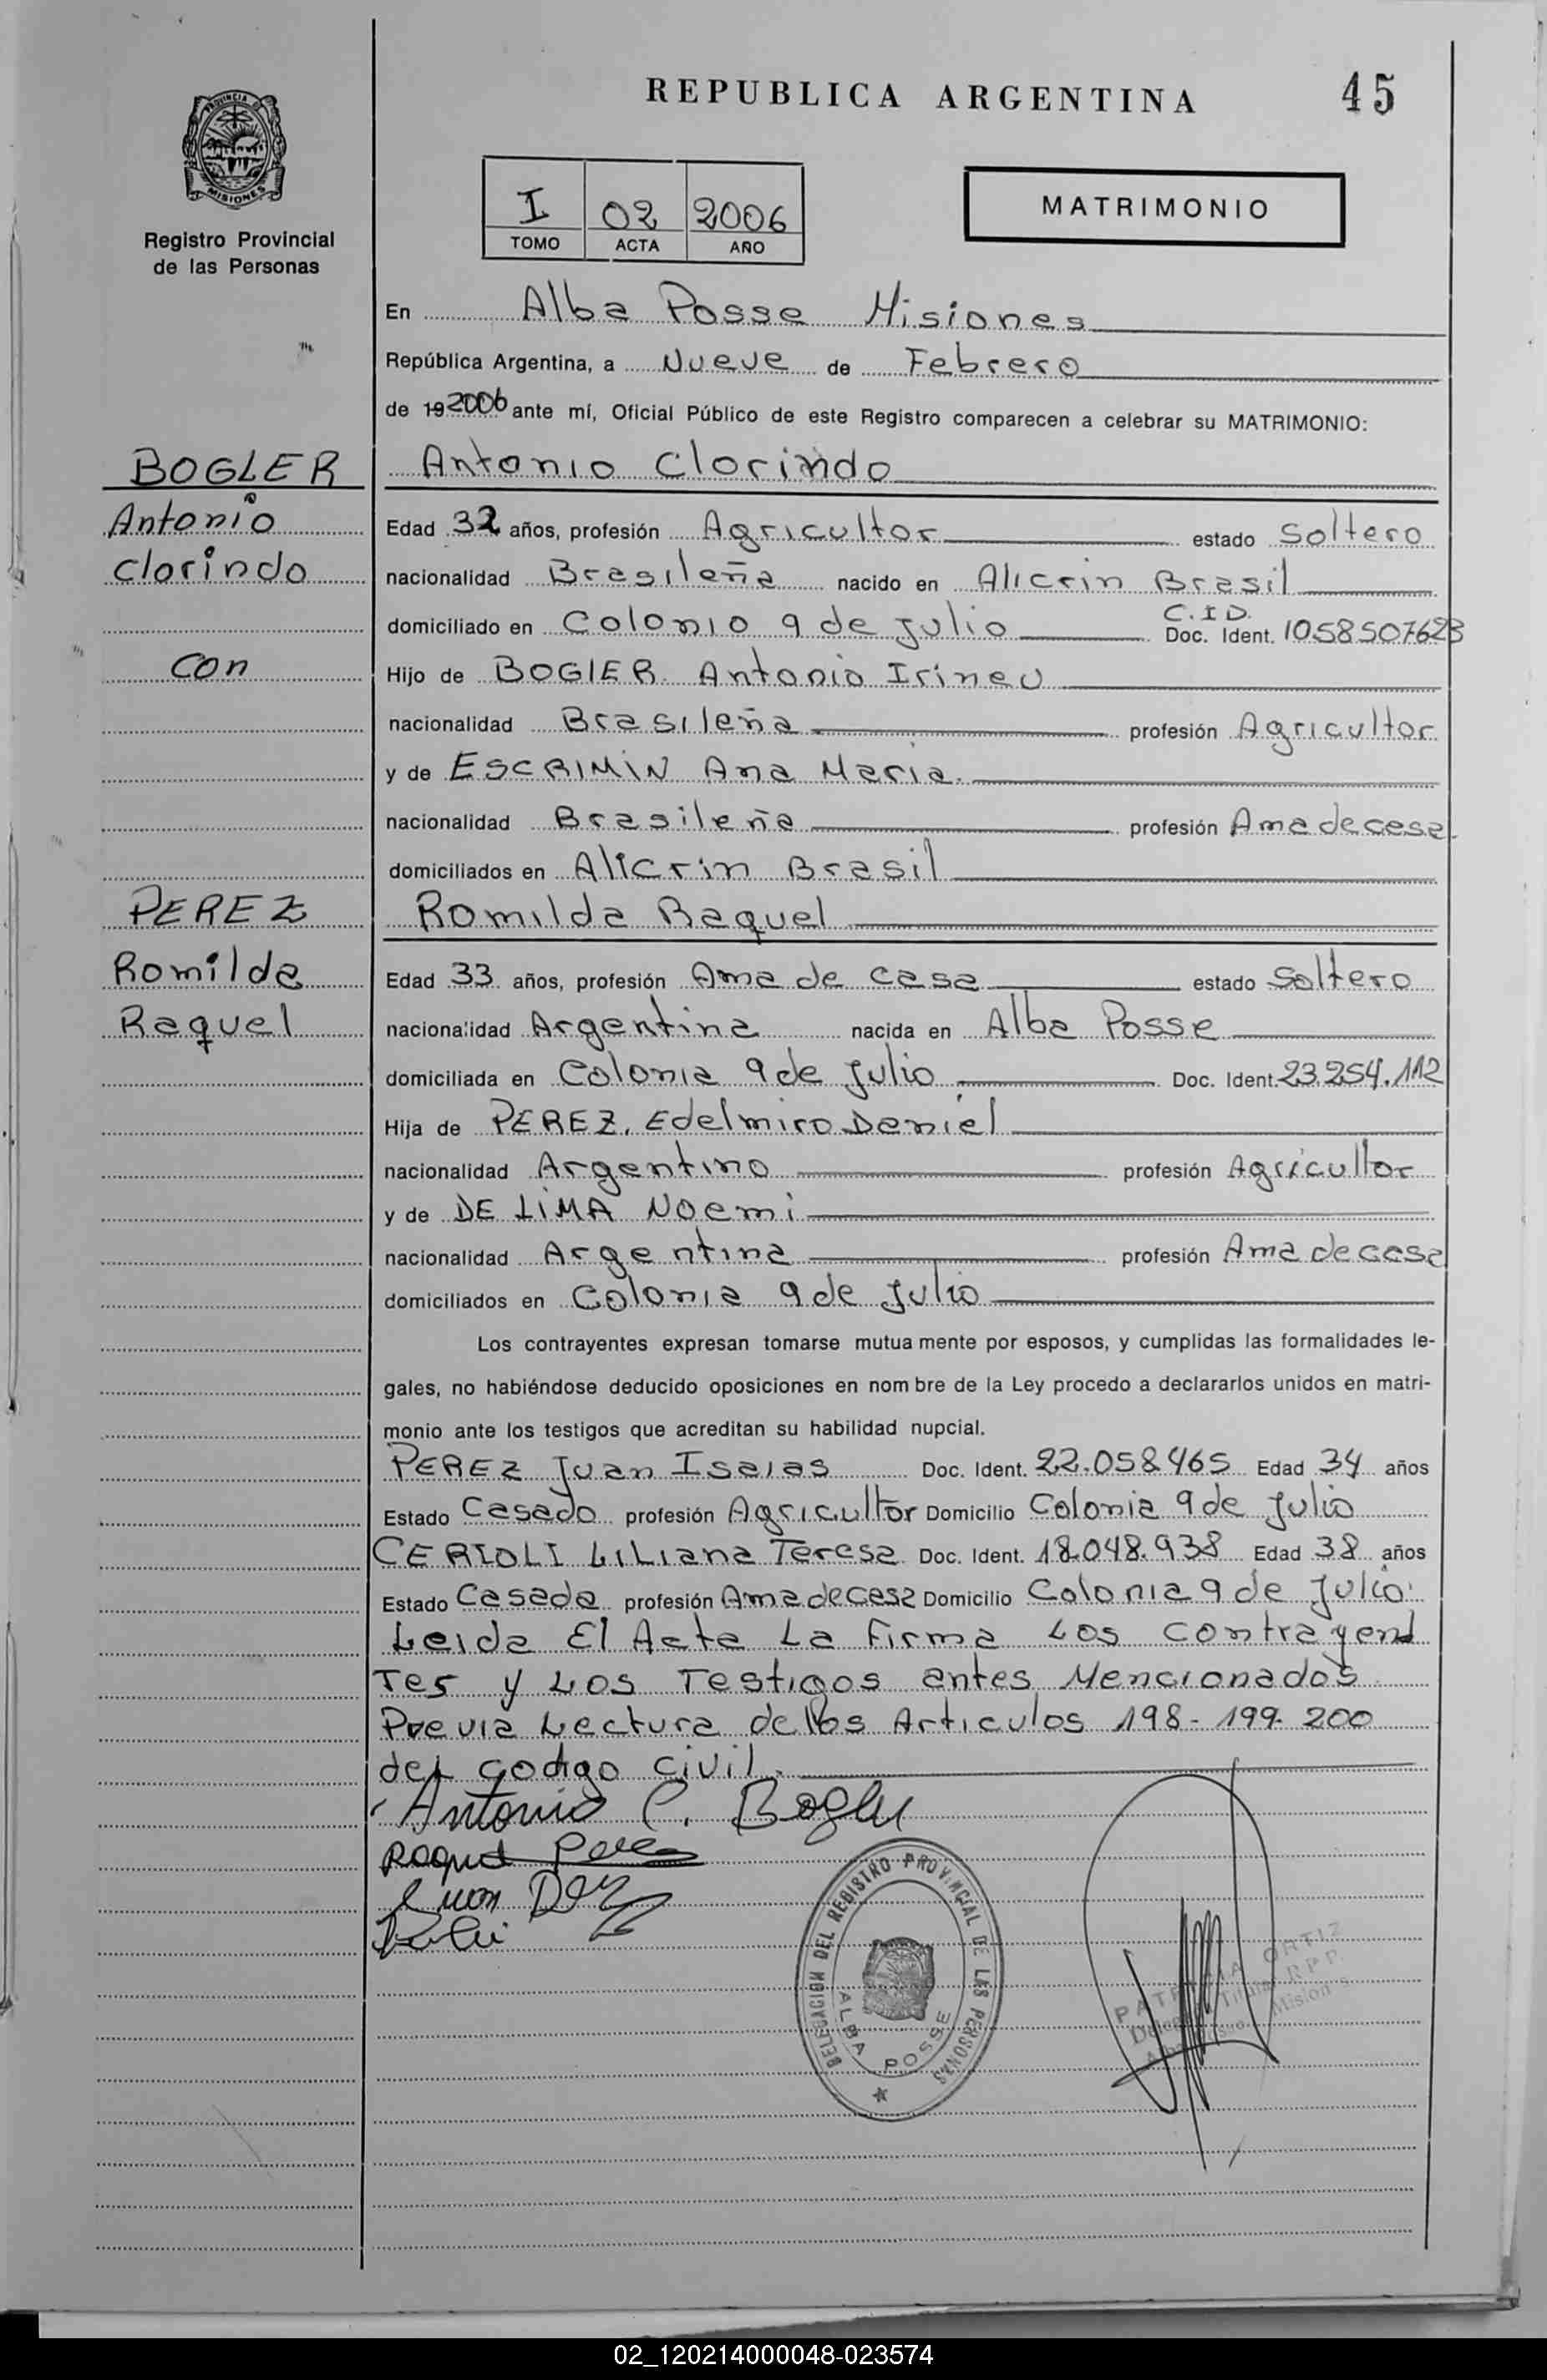 REPUBLICA ARGENTINA 45
PROVINCIA DE MISIONES
Registro Provincial
de las Personas
I 02 2006
TOMO ACTA AÑO
MATRIMONIO
En Alba Posse Misiones
República Argentina, a Nueve de Febrero
de 19 2006 ante mí, Oficial Público de este Registro comparecen a celebrar su MATRIMONIO:
BOGLER Antonio Clorindo
Antonio Edad 32 años, profesión Agricultor estado Soltero
Clorindo nacionalidad Brasileña nacido en Alicrin Brasil
C.I.D.
domiciliado en Colonio 9 de Julio Doc. Ident. 1058507623
con Hijo de BOGLER Antonio Irineu
nacionalidad Brasileña profesión Agricultor
y de ESCRIMIN Ana Maria.
nacionalidad Brasileña profesión Ama de casa
domiciliados en Alicrin Brasil
PEREZ Romilda Raquel
Romilda Edad 33 años, profesión Ama de casa estado Soltero
Raquel nacionalidad Argentina nacida en Alba Posse
domiciliada en Colonia 9 de Julio Doc. Ident. 23.254.112
Hija de PEREZ, Edelmiro Daniel
nacionalidad Argentino profesión Agricultor
y de DE LIMA Noemi
nacionalidad Argentina profesión Ama de casa
domiciliados en Colonia 9 de Julio
Los contrayentes expresan tomarse mutua mente por esposos, y cumplidas las formalidades le-
gales, no habiéndose deducido oposiciones en nom bre de la Ley procedo a declararlos unidos en matri-
monio ante los testigos que acreditan su habilidad nupcial.
PEREZ Juan Isaias Doc. Ident. 22.058.465 Edad 34 años
Estado Casado profesión Agricultor Domicilio Colonia 9 de Julio
CERIOLI Liliana Teresa Doc. Ident. 18.048.938 Edad 38 años
Estado Casada profesión Ama de casa Domicilio Colonia 9 de Julio
Leida El Acta La Firma Los contrayen
Tes y Los Testigos antes Mencionados
Previa Lectura de los Articulos 198-199-200
del codigo civil.
Antonio C. Bogler
Raquel Perez
Juan
DELEGACION DEL REGISTRO PROVINCIAL DE LAS PERSONAS
ALBA POSSE
PATRICIA ORTIZ
Titular R.P.P.
Misiones
02_120214000048-023574